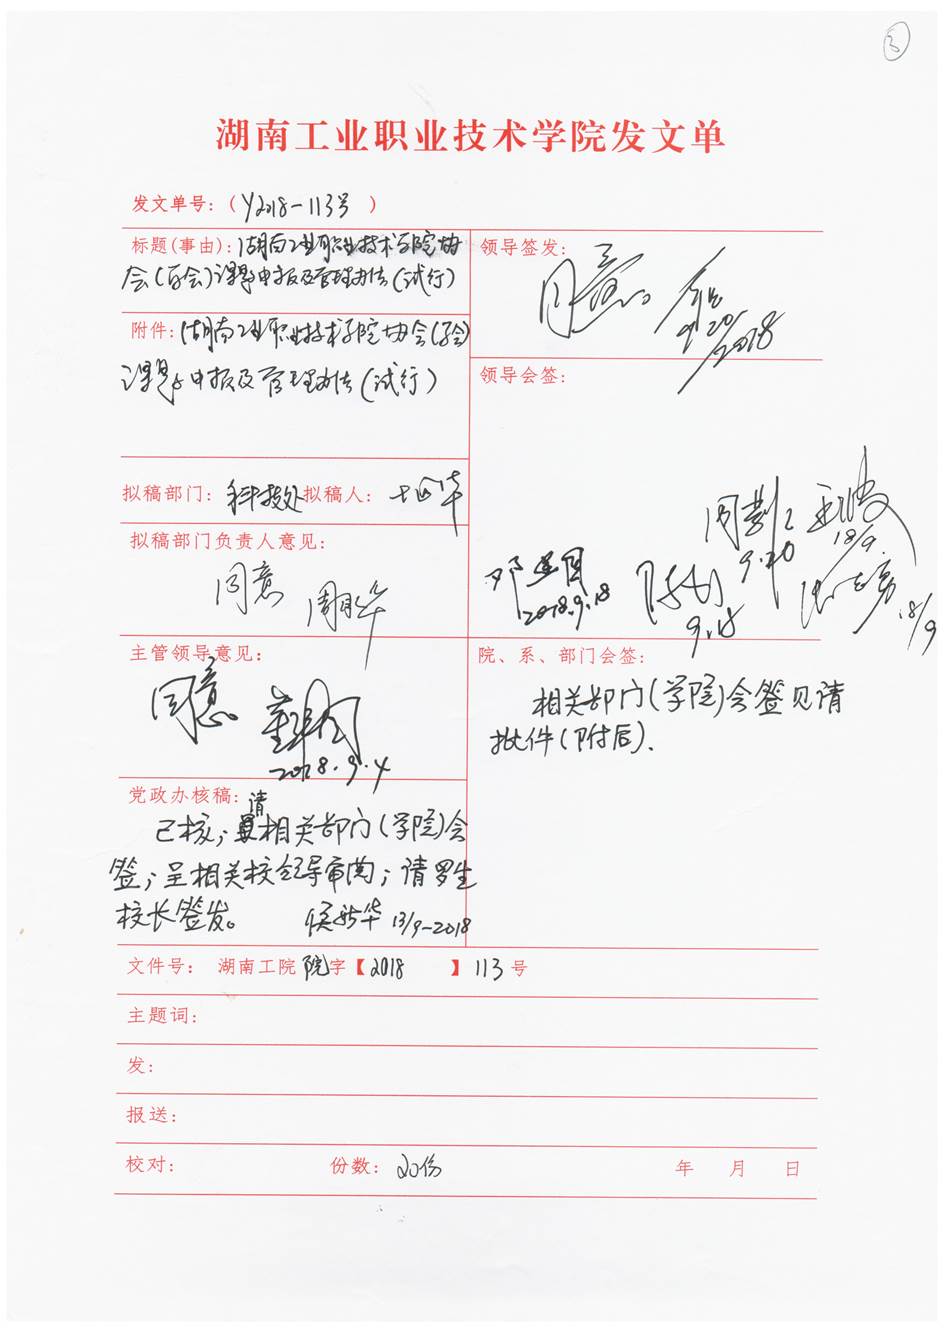 3
湖南工业职业技术学院发文单
发文单号：（Y2018-113号）
标题(事由)：湖南工业职业技术学院协
会(学会)课题申报及管理办法(试行)
领导签发：
同意
9.20
2018
附件：湖南工业职业技术学院协会(学会)
课题申报及管理办法(试行)
领导会签：
拟稿部门：科技处 拟稿人：
拟稿部门负责人意见：
同意
2018.9.18
9.18
9.20
18/9.
18/9
主管领导意见：
同意
2018.9.4
院、系、部门会签：
相关部门(学院)会签见请
批件(附后).
党政办核稿：
已核；请相关部门(学院)会
签；呈相关校领导审阅；请罗生
校长签发。 侯新华 13/9-2018
文件号： 湖南工院 院字【2018 】113号
主题词：
发：
报送：
校对： 份数：20份 年 月 日